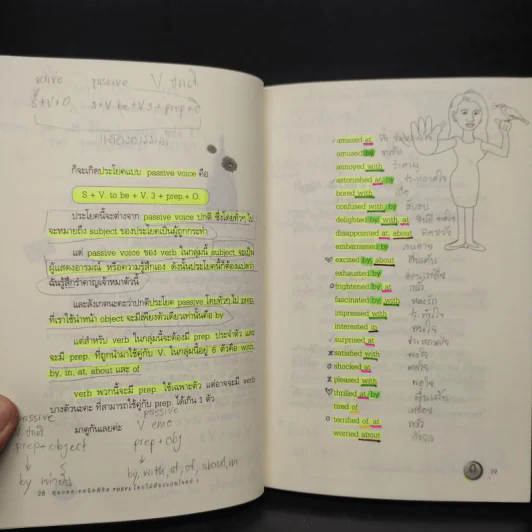 active passive V. ปกติ
S+V+O. S+V.be+V.3+prep+O
ก็จะเกิดประโยคแบบ passive voice คือ
S + V. to be + V. 3 + prep.+ O.
ประโยคนี้จะต่างจาก passive voice ปกติ ซึ่งโดยทั่วๆ ไป
จะหมายถึง subject ของประโยคเป็นผู้ถูกกระทำ
แต่ passive voice ของ verb ในกลุ่มนี้ subject จะเป็น
ผู้แสดงอารมณ์ หรือความรู้สึกเอง ดังนั้นประโยคนี้ก็ต้องแปลว่า
ฉันรู้สึกรำคาญเจ้าหมาตัวนี้
และสังเกตนะคะว่าปกติประโยค passive โดยทั่วๆ ไป prep.
ที่เราใช้นำหน้า object จะมีเพียงตัวเดียวเท่านั้นคือ by
แต่สำหรับ verb ในกลุ่มนี้จะต้องมี prep. ประจำตัว และ
จะมี prep. ที่ถูกนำมาใช้คู่กับ V. ในกลุ่มนี้อยู่ 6 ตัวคือ with,
by, in, at, about และ of
verb พวกนี้จะมี prep. ใช้เฉพาะตัว แต่อาจจะมี verb
บางตัวนะคะ ที่สามารถใช้คู่กับ prep. ได้เกิน 1 ตัว
มาดูกันเลยค่ะ
passive passive
V. ปกติ V. emo
prep+object prep+obj
by เท่านั้น by, with, at, of, about, in
amused at
amused by
annoyed with รำคาญ
astonished at by ประหลาดใจ
bored with เบื่อ
confused with, by สับสน
delighted by with, at
disappointed at, about ผิดหวัง
embarrassed by
excited by, about ตื่นเต้น
exhausted by
frightened by, at กลัว
fascinated with, by
impressed with ประทับใจ
interested in สนใจ
surprised at ประหลาดใจ
satisfied with พอใจ
shocked at ตกใจ
pleased with พอใจ
thrilled at by ตื่นเต้น
tired of เหนื่อย
terrified of, at กลัว
worried about กังวล